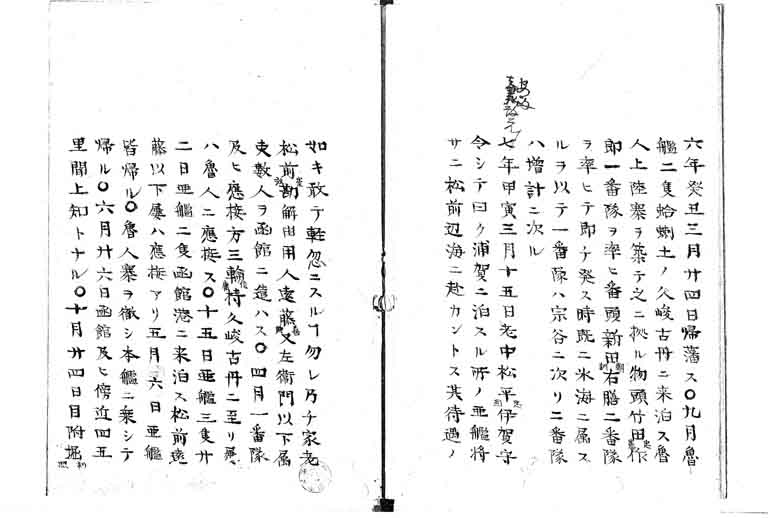 六年癸丑三月廿四日帰藩ス〇九月魯
艦二隻蛤蜊土ノ久峻古丹ニ来泊ス魯
人上陸寨ヲ築テ之ニ拠ル物頭竹田作
即一番隊ヲ率ヒ番頭新田右膳二番隊
ヲ率ヒテ即チ発ス時既ニ氷海ニ属ス
ルヲ以テ一番隊ハ宗谷ニ次リ二番隊
ハ増計ニ次ル
七年甲寅三月十五日老中松平伊賀守
令シテ曰ク浦賀ニ泊スル所ノ亜艦将
サニ松前辺海ニ赴カントス其待遇ノ
如キ敢テ軽忽ニスルヿ勿レ乃チ家老
松前勘解由用人遠藤又左衛門以下属
吏数人ヲ函館ニ遣ハス〇四月一番隊
及ヒ應接方三輪持久峻古丹ニ至リ屡
ハ魯人ニ應接ス〇十五日亜艦三隻廿
二日亜艦二隻函館港ニ来泊ス松前遠
藤以下屡ハ應接アリ五月八日亜艦
皆帰ル〇魯人寨ヲ徹シ本艦ニ乗シテ
帰ル〇六月廿六日函館及ヒ傍近四五
里間上知トナル〇十月廿四日目附堀